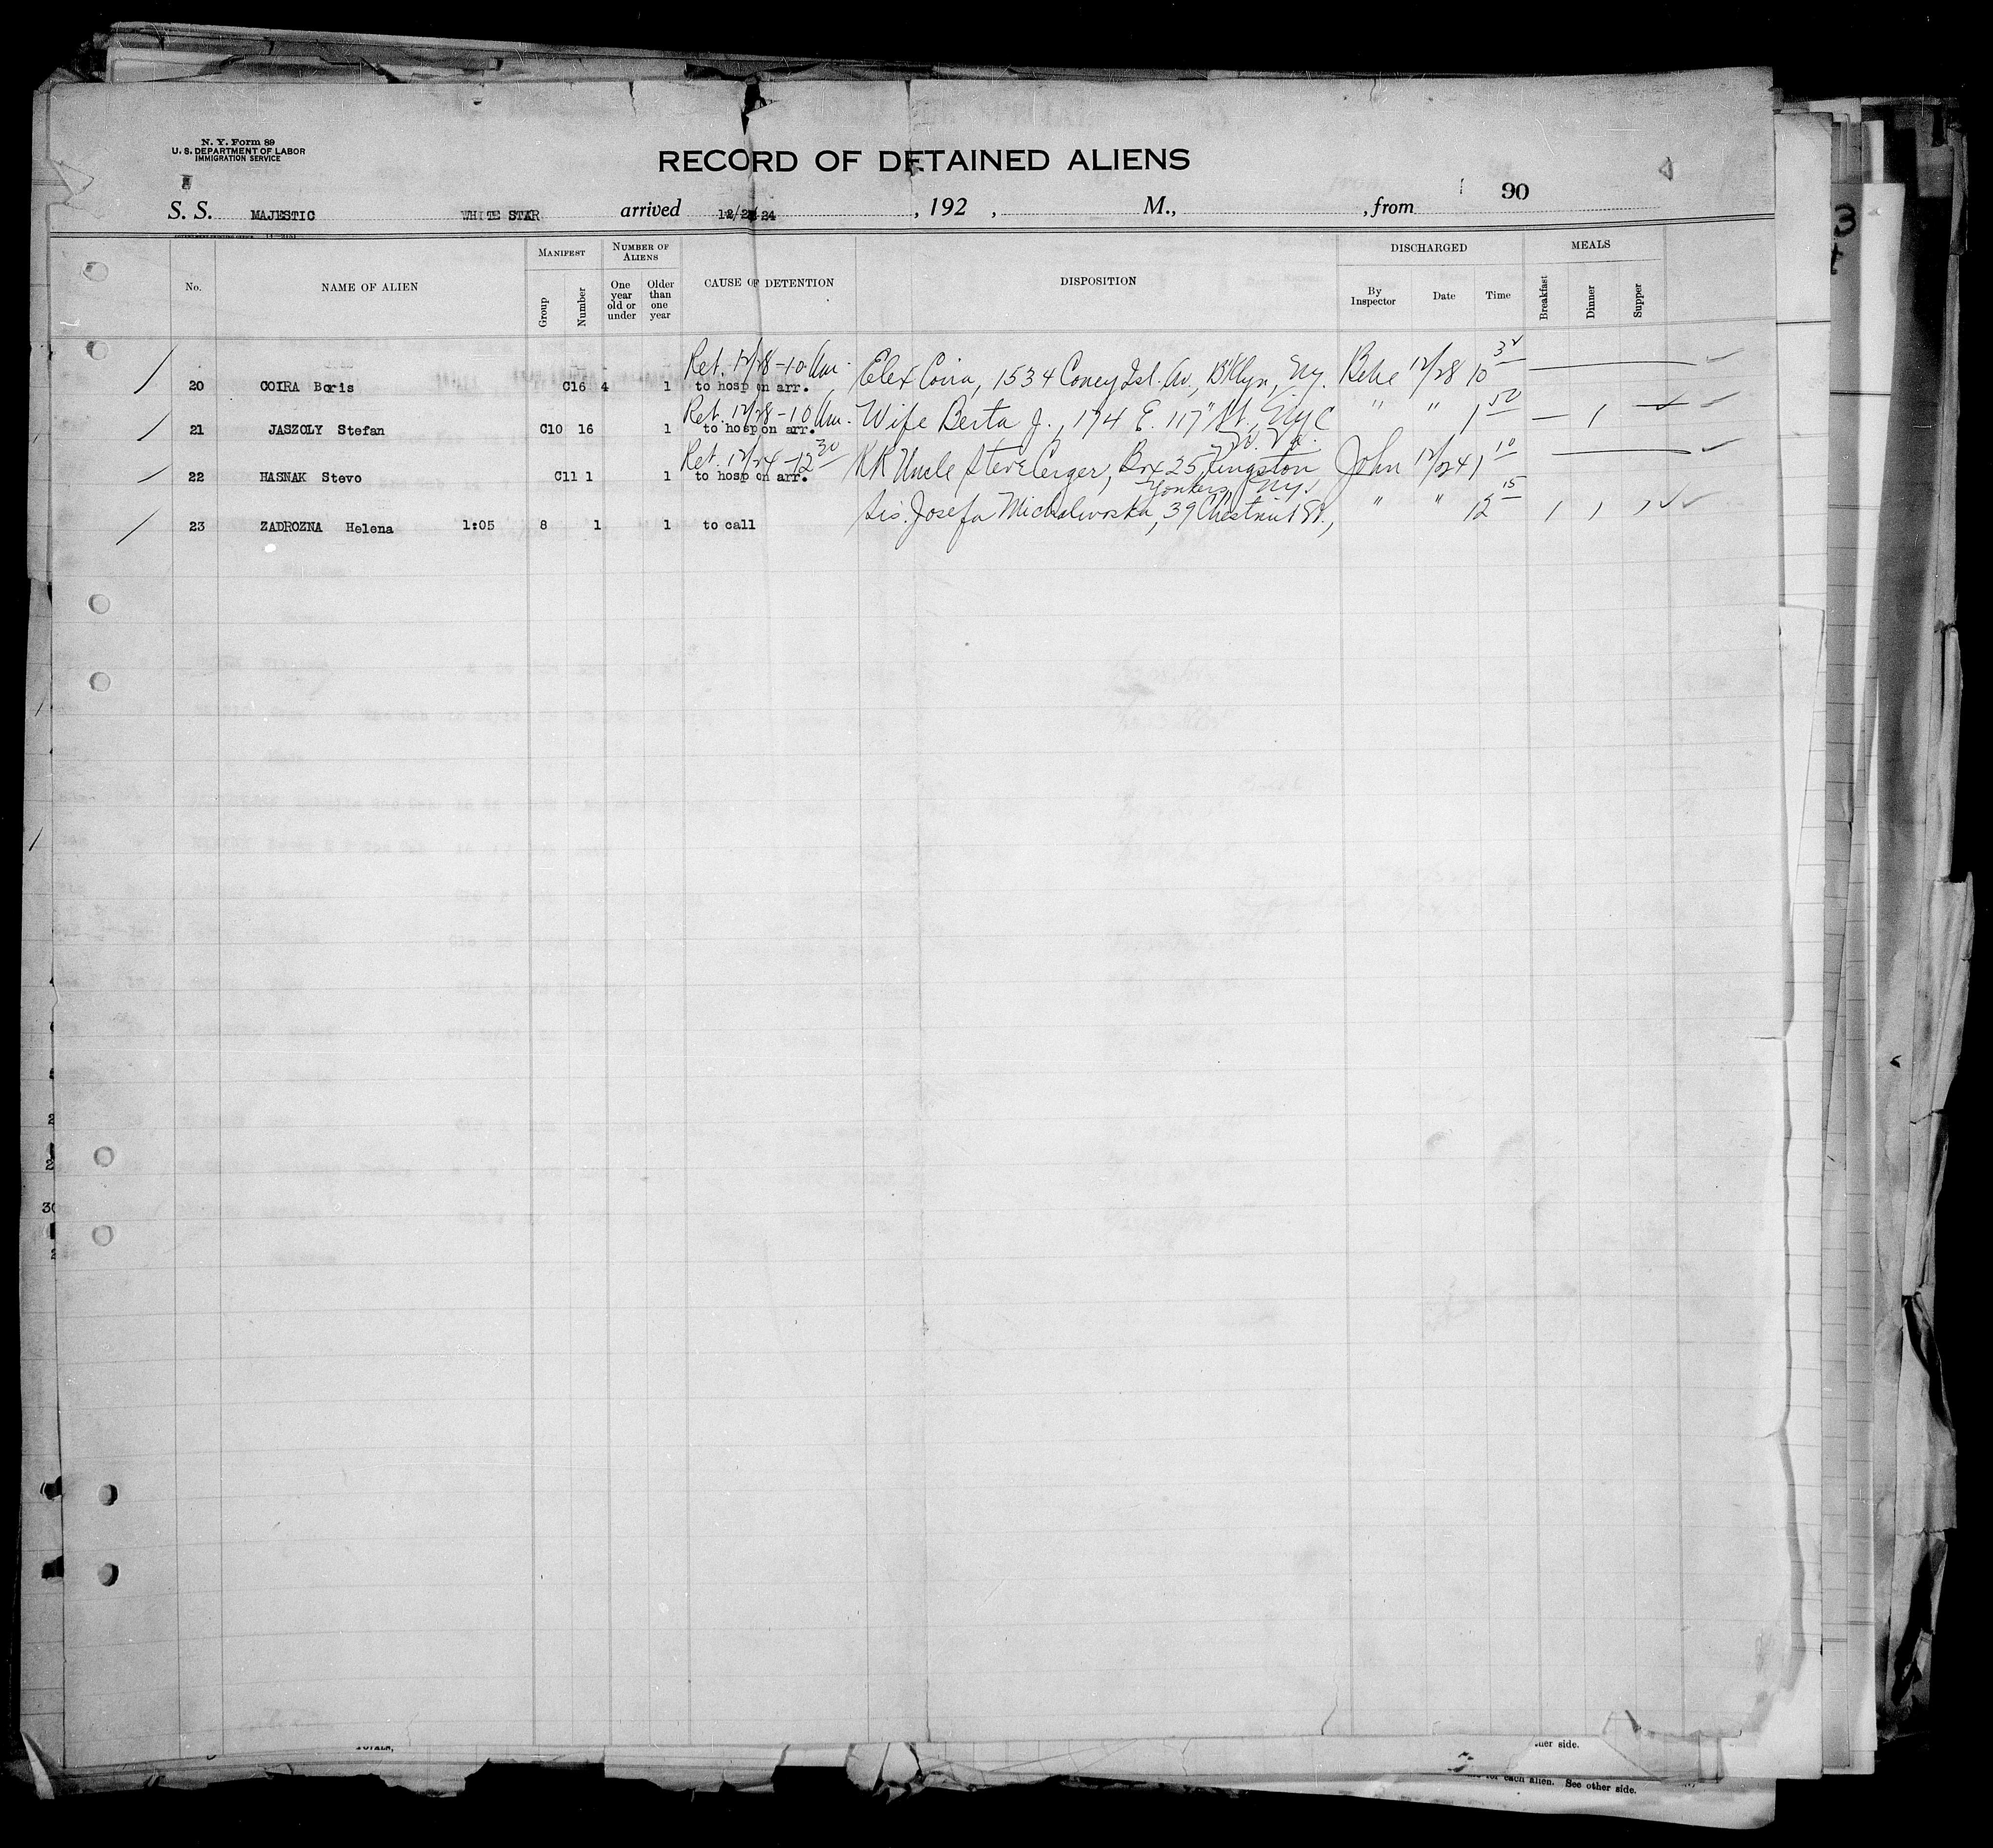 N. Y. Form 89
U. S. DEPARTMENT OF LABOR
IMMIGRATION SERVICE
RECORD OF DETAINED ALIENS
90
S. S. MAJESTIC WHITE STAR arrived 12/2 /24 , 192 , M., , from
No. NAME OF ALIEN MANIFEST Group Number NUMBER OF ALIENS One year old or under Older than one year CAUSE OF DETENTION DISPOSITION DISCHARGED By Inspector Date Time MEALS Breakfast Dinner Supper
Ret. 12/28 - 10 Am.
20 COIRA Boris C16 4 1 to hosp on arr. Elex Coira, 1534 Coney Isl. Av., B'klyn, Ny. 12/28 10 32
Ret. 12/28 - 10 Am.
21 JASZOLY Stefan C10 16 1 to hosp on arr. Wife Berta J., 174 E. 117" St., NYC " " 1 50
Ret. 12/24 - 12 30
22 HASNAK Stevo C11 1 1 to hosp on arr. RR Uncle Steve Cerger, Box 25, Kingston John 12/24 1 10
Yonkers, Ny.
23 ZADROZNA Helena 1:05 8 1 1 to call Sis. Josefa Michalwoska, 39 Chestnut St., " " 12 15
30
ther side.
for each alien. See other side.